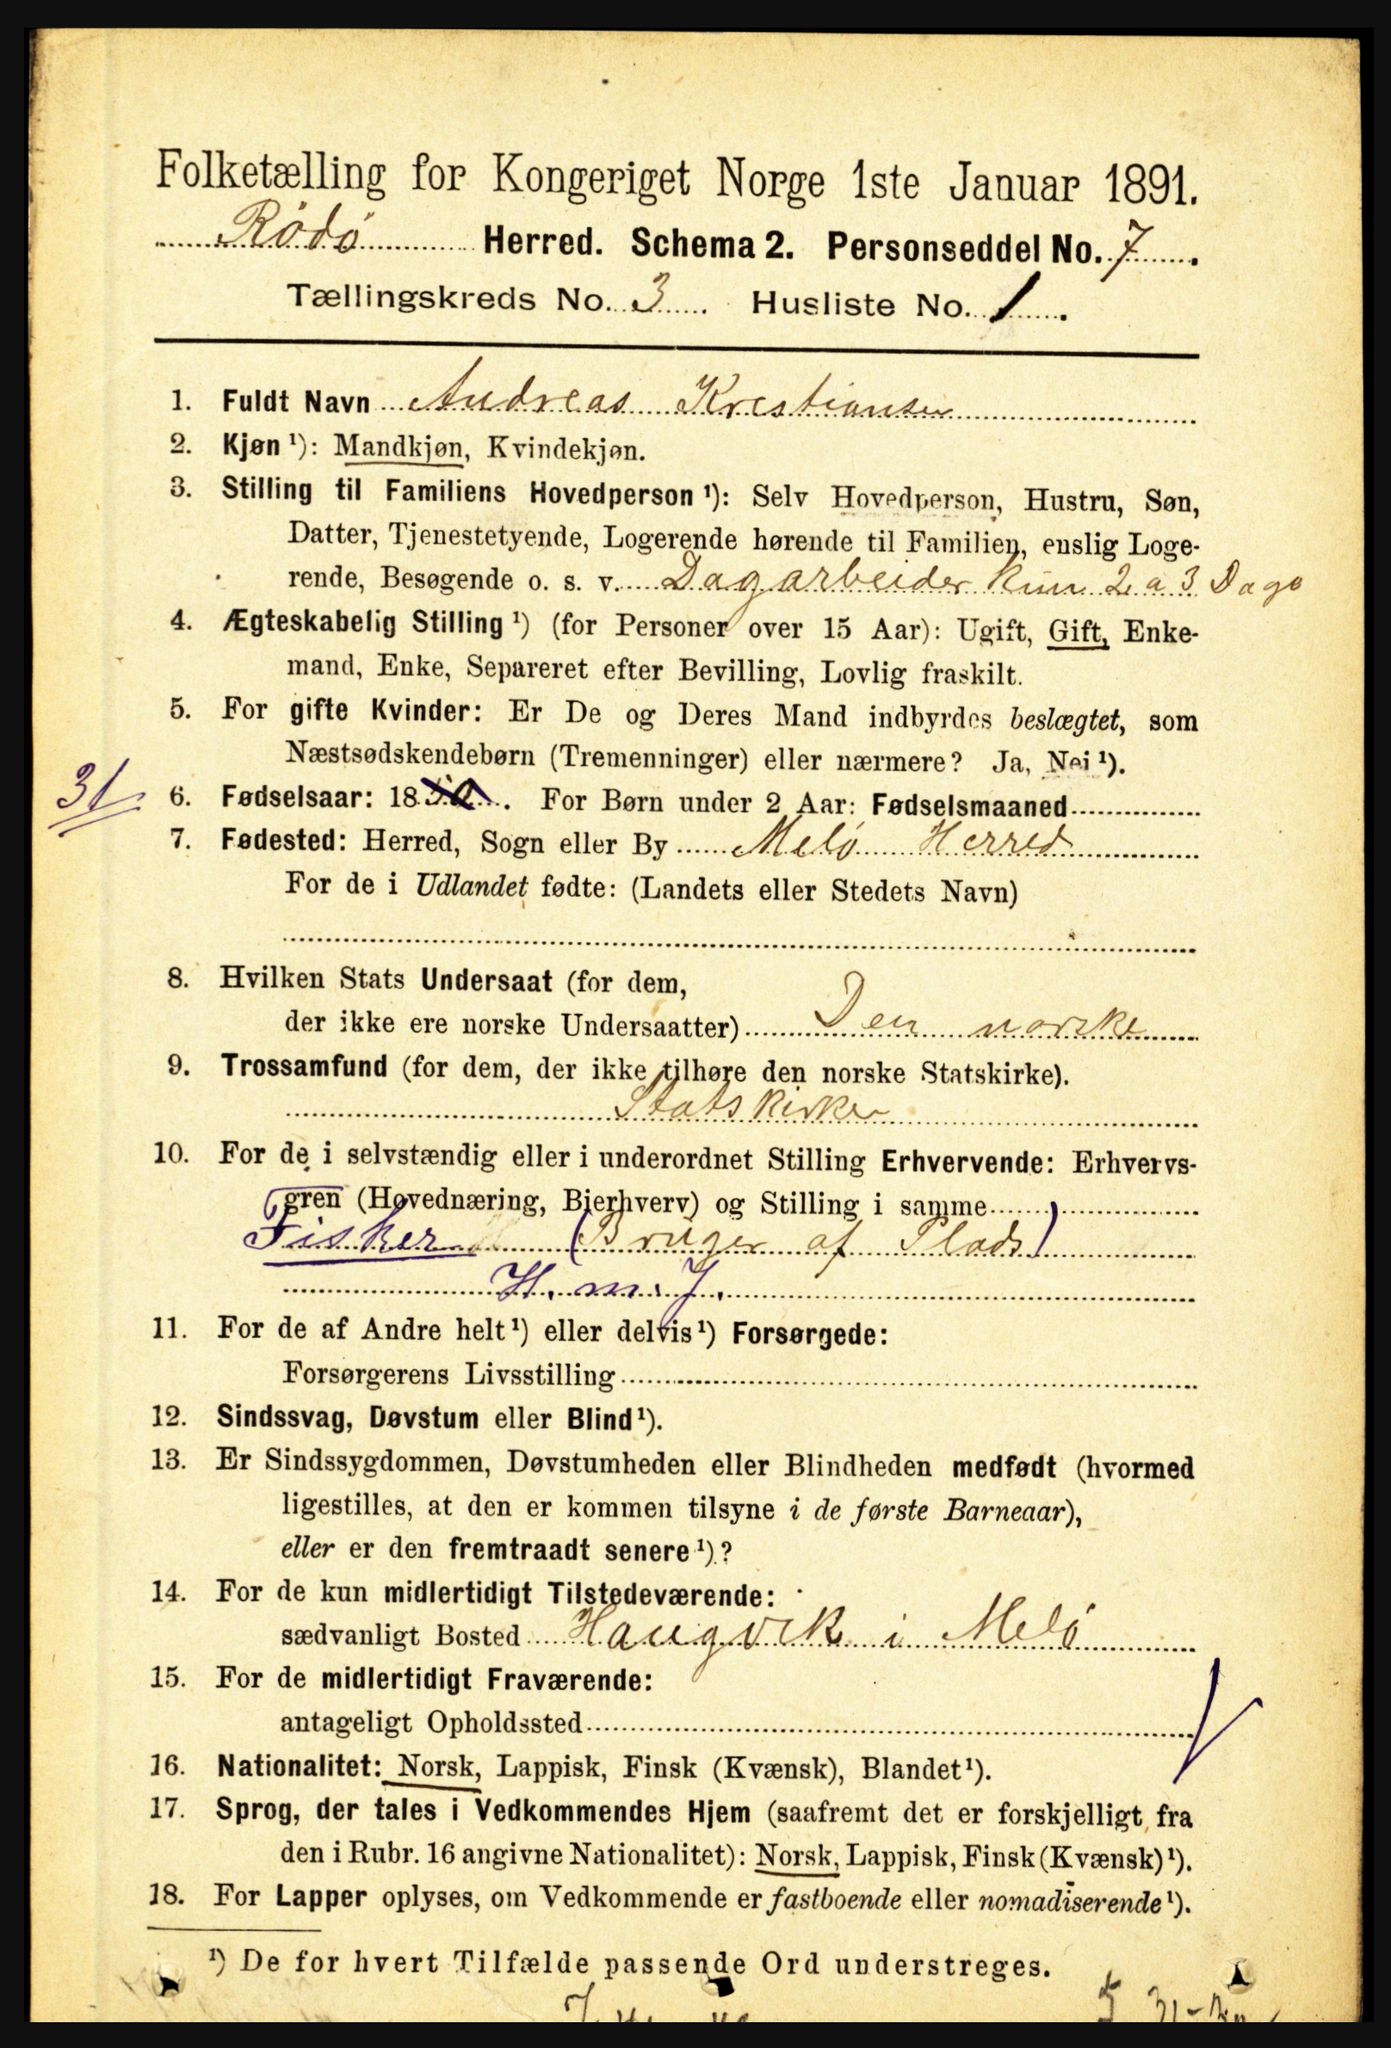 Folketælling for Kongeriget Norge 1ste Januar 1891.
Rödö Herred. Schema 2. Personseddel No. 7.
Tællingskreds No. 3. Husliste No. 1.
1. Fuldt Navn Andreas Krestiansen
2. Kjøn ¹): Mandkjøn, Kvindekjøn.
3. Stilling til Familiens Hovedperson ¹): Selv Hovedperson, Hustru, Søn,
Datter, Tjenestetyende, Logerende hørende til Familien, enslig Loge-
rende, Besøgende o. s. v. Dagarbeider kun 2 a 3 Dage
4. Ægteskabelig Stilling ¹) (for Personer over 15 Aar): Ugift, Gift, Enke-
mand, Enke, Separeret efter Bevilling, Lovlig fraskilt.
5. For gifte Kvinder: Er De og Deres Mand indbyrdes beslægtet, som
Næstsødskendebørn (Tremenninger) eller nærmere? Ja, Nei ¹).
31
6. Fødselsaar: 18 . For Børn under 2 Aar: Fødselsmaaned
7. Fødested: Herred, Sogn eller By Melö Herred
For de i Udlandet fødte: (Landets eller Stedets Navn)
8. Hvilken Stats Undersaat (for dem,
der ikke ere norske Undersaatter) Den norske
9. Trossamfund (for dem, der ikke tilhøre den norske Statskirke).
Statskirken
10. For de i selvstændig eller i underordnet Stilling Erhvervende: Erhvervs-
gren (Hovednæring, Bierhverv) og Stilling i samme
Fisker (Bruger af Plads)
H. m. J.
11. For de af Andre helt ¹) eller delvis ¹) Forsørgede:
Forsørgerens Livsstilling
12. Sindssvag, Døvstum eller Blind ¹).
13. Er Sindssygdommen, Døvstumheden eller Blindheden medfødt (hvormed
ligestilles, at den er kommen tilsyne i de første Barneaar),
eller er den fremtraadt senere ¹)?
14. For de kun midlertidigt Tilstedeværende:
sædvanligt Bosted Haugvik i Melö
15. For de midlertidigt Fraværende:
antageligt Opholdssted
16. Nationalitet: Norsk, Lappisk, Finsk (Kvænsk), Blandet ¹).
17. Sprog, der tales i Vedkommendes Hjem (saafremt det er forskjelligt fra
den i Rubr. 16 angivne Nationalitet): Norsk, Lappisk, Finsk (Kvænsk) ¹).
18. For Lapper oplyses, om Vedkommende er fastboende eller nomadiserende ¹).
¹) De for hvert Tilfælde passende Ord understreges.